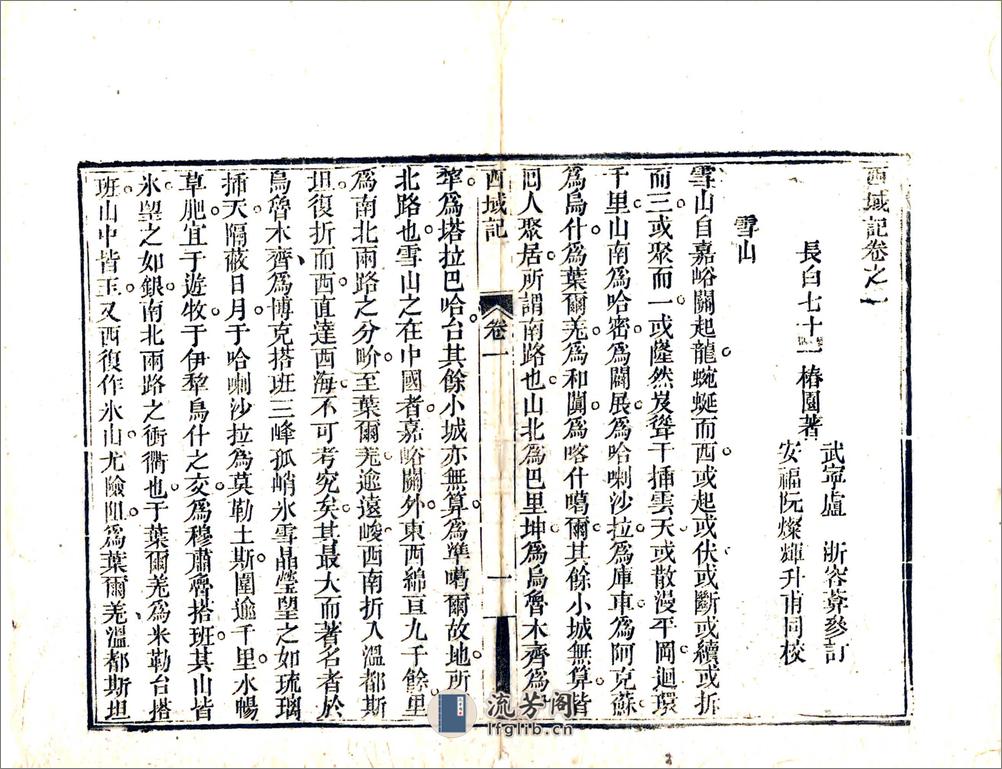 西域記卷之一
長白七十一椿園著
武寧盧 浙容葊參訂
安福阮燦輝升甫同校
雪山
雪山自嘉峪關起龍蜿蜒而西或起或伏或斷或續或折
而三或聚而一或隆然岌聳干揷雲天或散漫平岡迴環
千里山南爲哈密爲闢展爲哈喇沙拉爲庫車爲阿克蘇
爲烏什爲葉爾羌爲和闐爲喀什噶爾其餘小城無算皆
囘人聚居所謂南路也山北爲巴里坤爲烏魯木齊爲
西域記 卷一 一
犂爲塔拉巴哈台其餘小城亦無算爲準噶爾故地所
北路也雪山之在中國者嘉峪關外東西綿亘九千餘里
爲南北兩路之分界至葉爾羌逾遠峻西南折入溫都斯
坦復折而西直達西海不可考究矣其最大而著名者於
烏魯木齊爲博克搭班三峰孤峭氷雪晶瑩望之如琉璃
揷天隔蔽日月于哈喇沙拉爲莫勒土斯圍逾千里水暢
草肥宜于遊牧于伊犂烏什之交爲穆肅喬搭班其山皆
氷望之如銀南北兩路之衝衢也于葉爾羌爲米勒台搭
班山中皆玉又西復作氷山尤險阻爲葉爾羌溫都斯坦
流芳阁
lfglib.cn